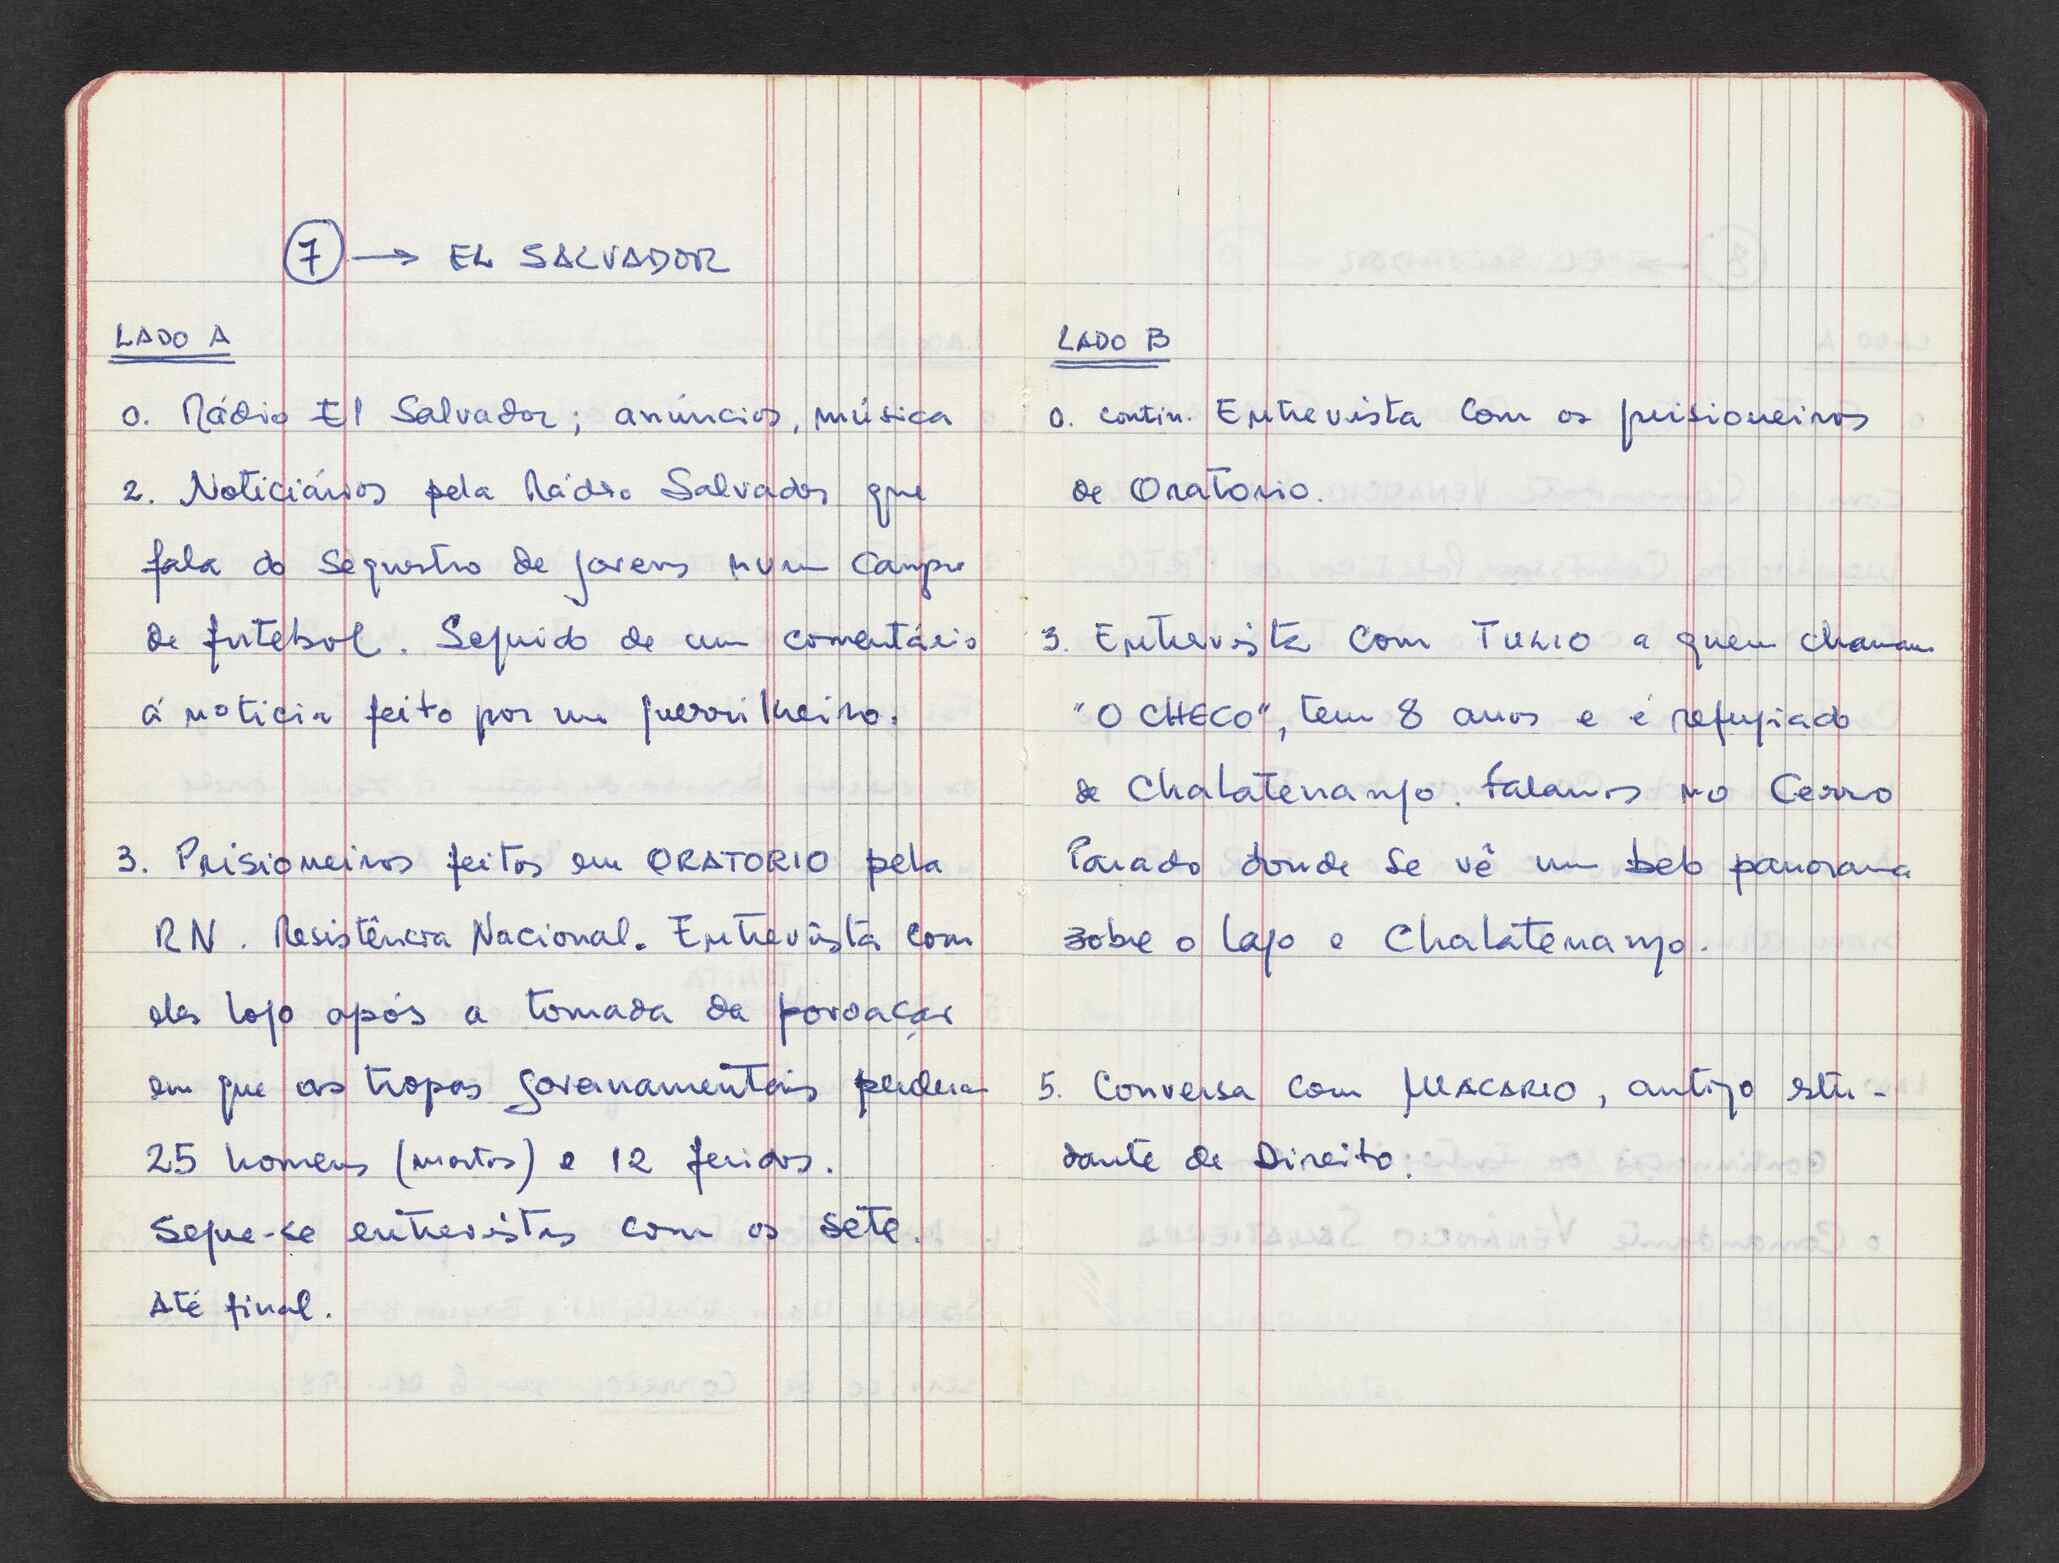 7 → EL SALVADOR
LADO A
0. Rádio El Salvador; anúncios, música
2. Noticiários pela Rádio Salvador que
fala do sequestro de jovens num campo
de futebol. Seguido de um comentário
á noticia feito por um guerrilheiro.
3. Prisioneiros feitos em ORATORIO pela
RN. Resistência Nacional. Entrevista com
eles logo após a tomada da povoação
em que as tropas governamentais perderam
25 homens (mortos) e 12 feridos.
Segue-se entrevistas com os sete.
Até final.
LADO B
0. contin. Entrevista com os prisioneiros
de Oratorio.
3. Entrevista com TULIO a quem chamam
"O CHECO", tem 8 anos e é refugiado
de Chalatenango. Falamos no Cerro
Parado donde se vê um belo panorama
sobre o lago e Chalatenango.
5. Conversa com MACARIO, antigo estu-
dante de Direito.